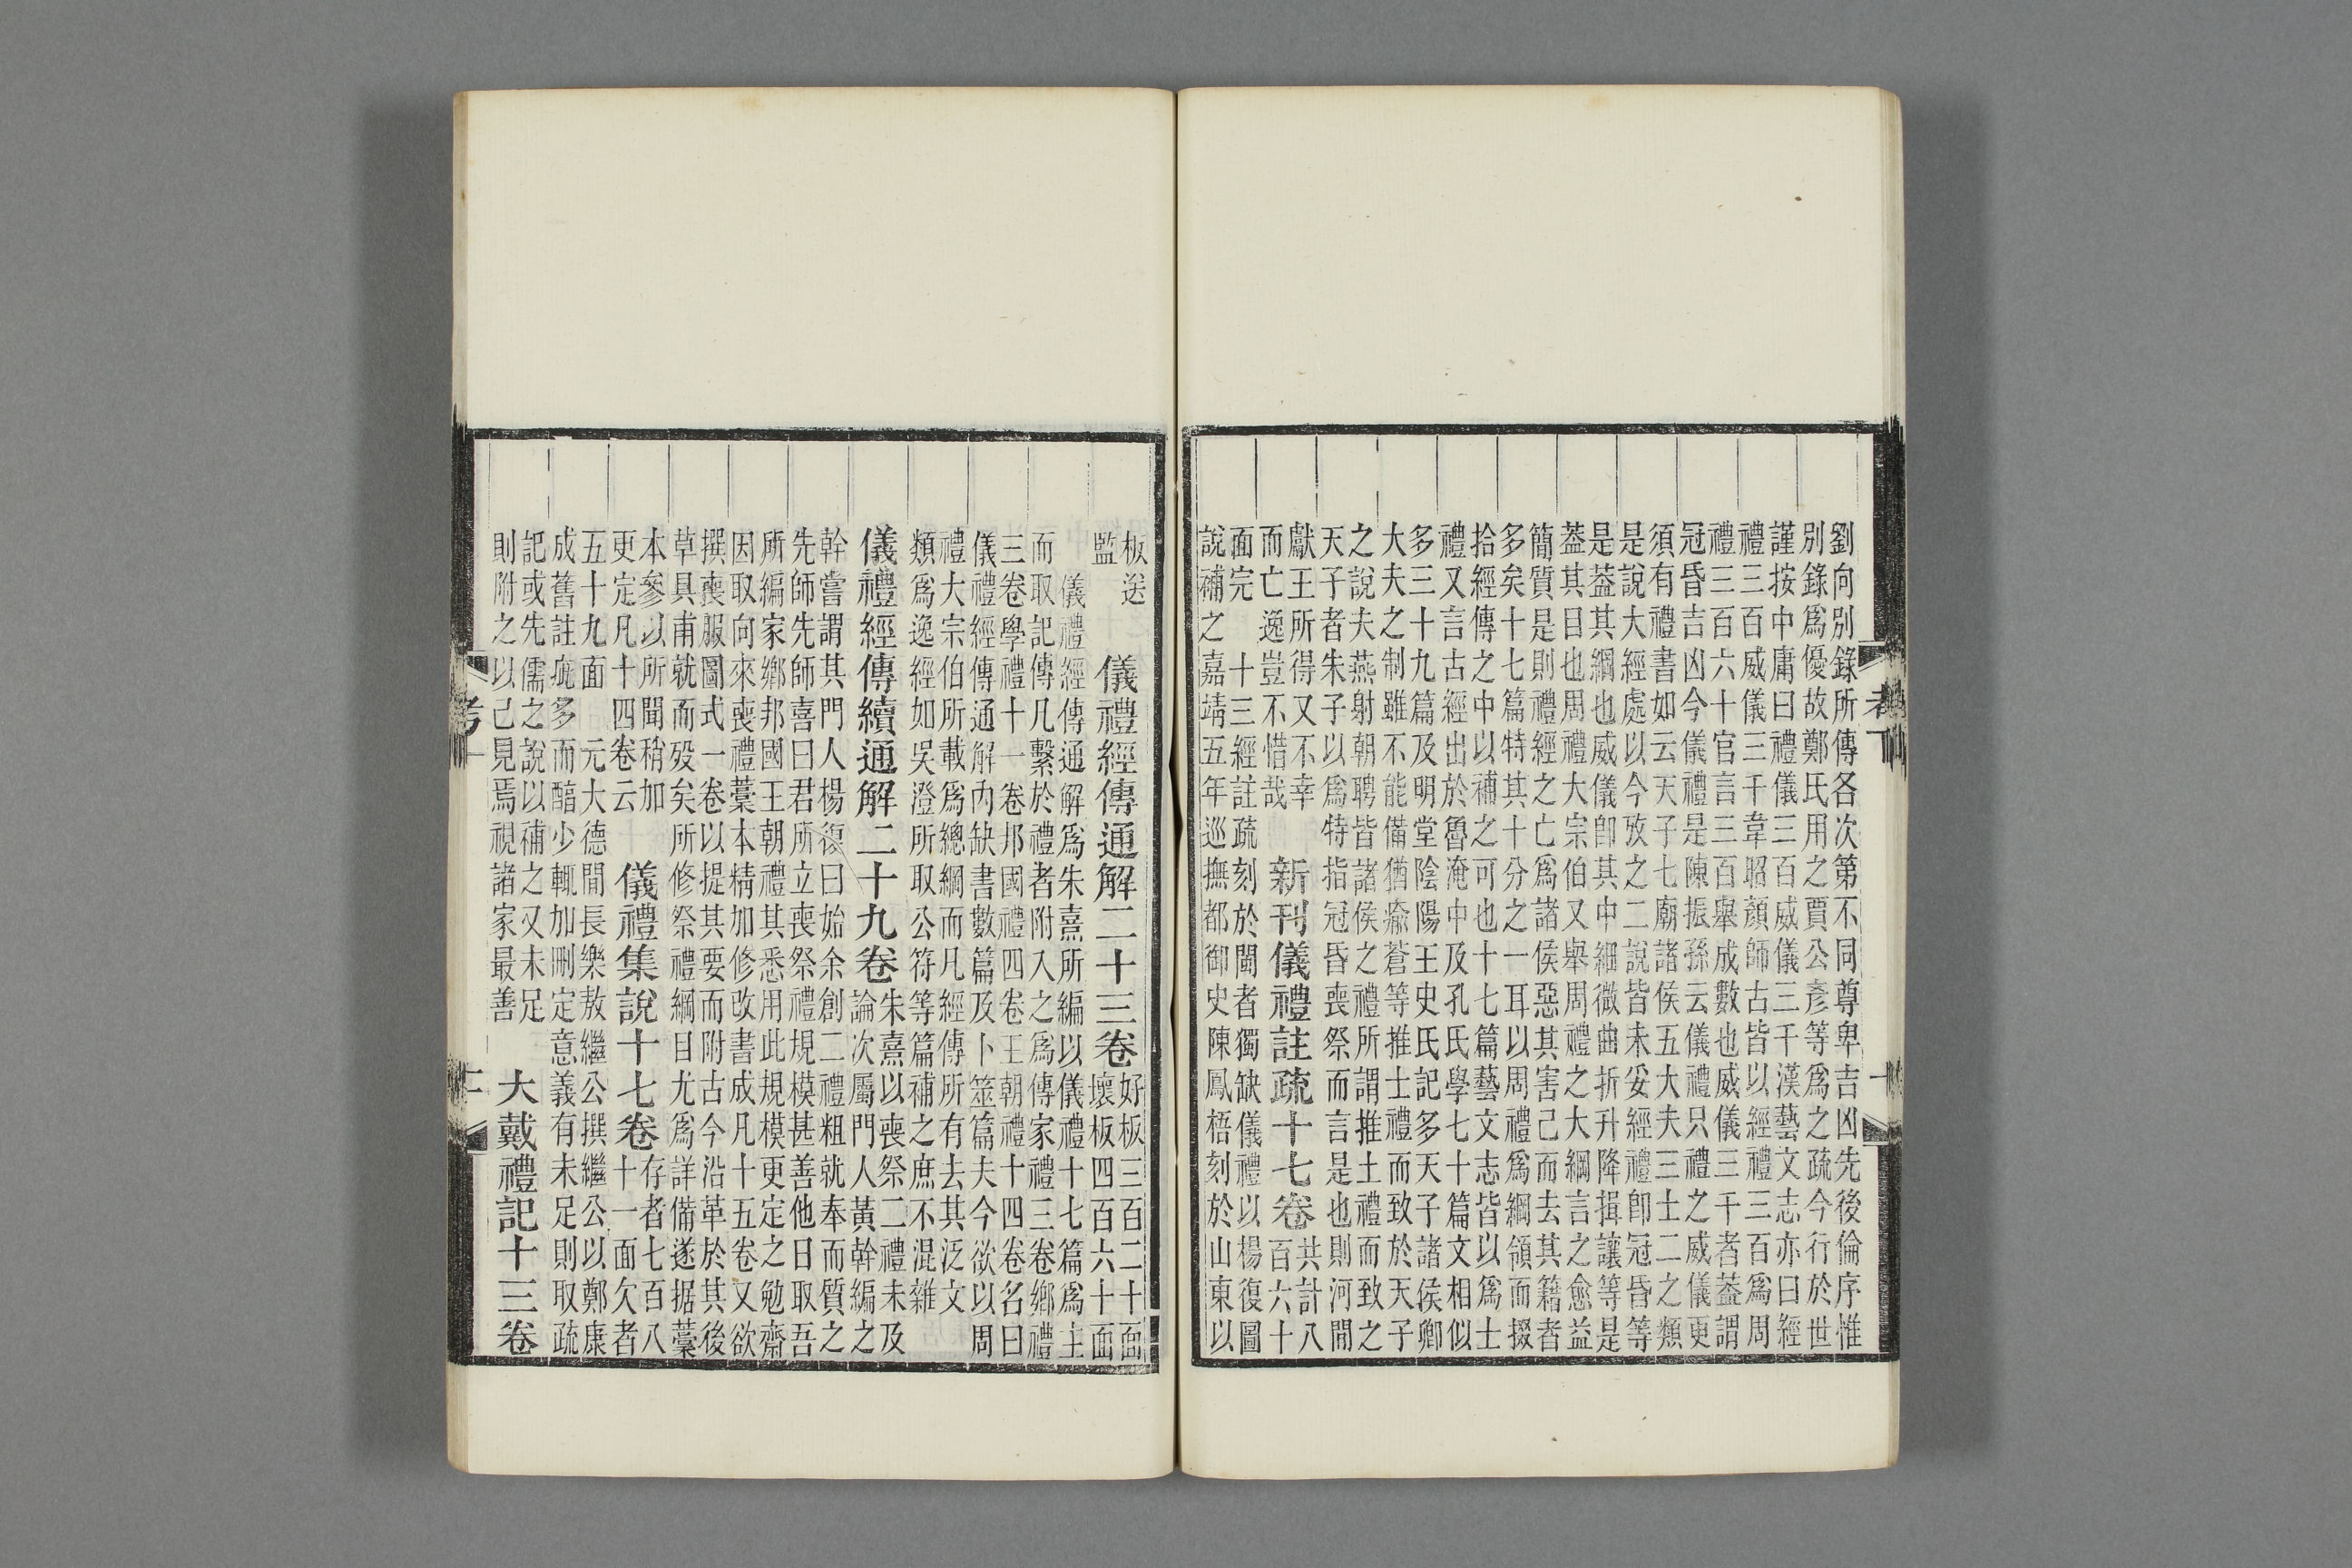 劉向別錄所傳各次第不同尊卑吉凶先後倫序惟
別錄爲優故鄭氏用之賈公彥等爲之疏今行於世
謹按中庸曰禮儀三百威儀三千漢藝文志亦曰經
禮三百威儀三千韋昭顏師古皆以經禮三百爲周
禮三百六十官言三百舉成數也威儀三千者葢謂
冠昏吉凶今儀禮是陳振孫云儀禮只禮之威儀更
須有禮書如云天子七廟諸侯五大夫三士二之類
是說大經處以今攷之二說皆未妥經禮卽冠昏等
是葢其綱也威儀卽其中細微曲折升降揖讓等是
葢其目也周禮大宗伯又舉周禮之大綱言之愈益
簡質是則禮經之亡爲諸侯惡其害己而去其籍者
多矣十七篇特其十分之一耳以周禮爲綱領而掇
拾經傳之中以補之可也十七篇藝文志皆以爲士
禮又言古經出於魯淹中及孔氏學七十篇文相似
多三十九篇及明堂陰陽王史氏記多天子諸侯卿
大夫之制雖不能備猶瘉蒼等推士禮而致於天子
之說夫燕射朝聘皆諸侯之禮所謂推士禮而致之
天子者朱子以爲特指冠昏喪祭而言是也則河間
獻王所得又不幸
而亡逸豈不惜哉
新刊儀禮註疏十七卷
共計八
百六十
面完
十三經註疏刻於閩者獨缺儀禮以楊復圖
說補之嘉靖五年巡撫都御史陳鳳梧刻於山東以
板送
監
儀禮經傳通解二十三卷
好板三百二十面
壞板四百六十面
儀禮經傳通解爲朱熹所編以儀禮十七篇爲主
而取記傳凡繫於禮者附入之爲傳家禮三卷鄉禮
三卷學禮十一卷邦國禮四卷王朝禮十四卷名曰
儀禮經傳通解內缺書數篇及卜筮篇夫今欲以周
禮大宗伯所載爲總綱而凡經傳所有去其泛文
類爲逸經如吳澄所取公符等篇補之庶不混雜
儀禮經傳續通解二十九卷
朱熹以喪祭二禮未及
論次屬門人黃幹編之
幹嘗謂其門人楊復曰始余創二禮粗就奉而質之
先師先師喜曰君所立喪祭禮規模甚善他日取吾
所編家鄉邦國王朝禮其悉用此規模更定之勉齋
因取向來喪禮藁本精加修改書成凡十五卷又欲
撰喪服圖式一卷以提其要而附古今沿革於其後
草具甫就而歿矣所修祭禮綱目尤爲詳備遂据藁
本參以所聞稍加
更定凡十四卷云
儀禮集說十七卷
存者七百八
十一面欠者
五十九面
元大德間長樂敖繼公撰繼公以鄭康
成舊註疵多而醇少輒加刪定意義有未足則取疏
記或先儒之說以補之又未足
則附之以己見焉視諸家最善
大戴禮記十三卷